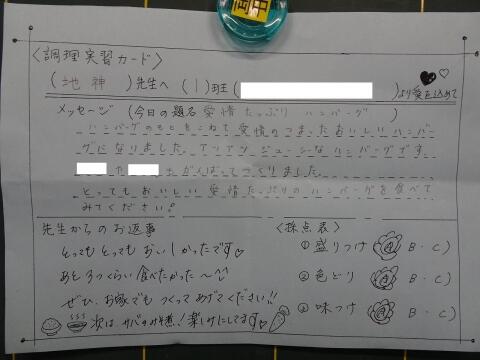 岡田
〈調理実習カード〉
(地神)先生へ (1)班( )より愛を込めて
メッセージ (今日の題名 愛情たっぷり ハンバーグ )
ハンバーグのもとをこねて愛情のつまったおいしいハンバ
ーグになりました。アツアツ ジューシーなハンバーグです。
がんばってつくりました。
とってもおいしい愛情たっぷりのハンバーグを食べて
みてください。
先生からのお返事
とってもとってもおいしかったです
あと3つくらい食べたかった〜
ぜひ、お家でもつくってあげてください!!
次は サバのみそ煮!楽しみにしてます
〈採点表〉
①盛りつけ (A B・C)
②色どり (A B・C)
③味つけ (A B・C)